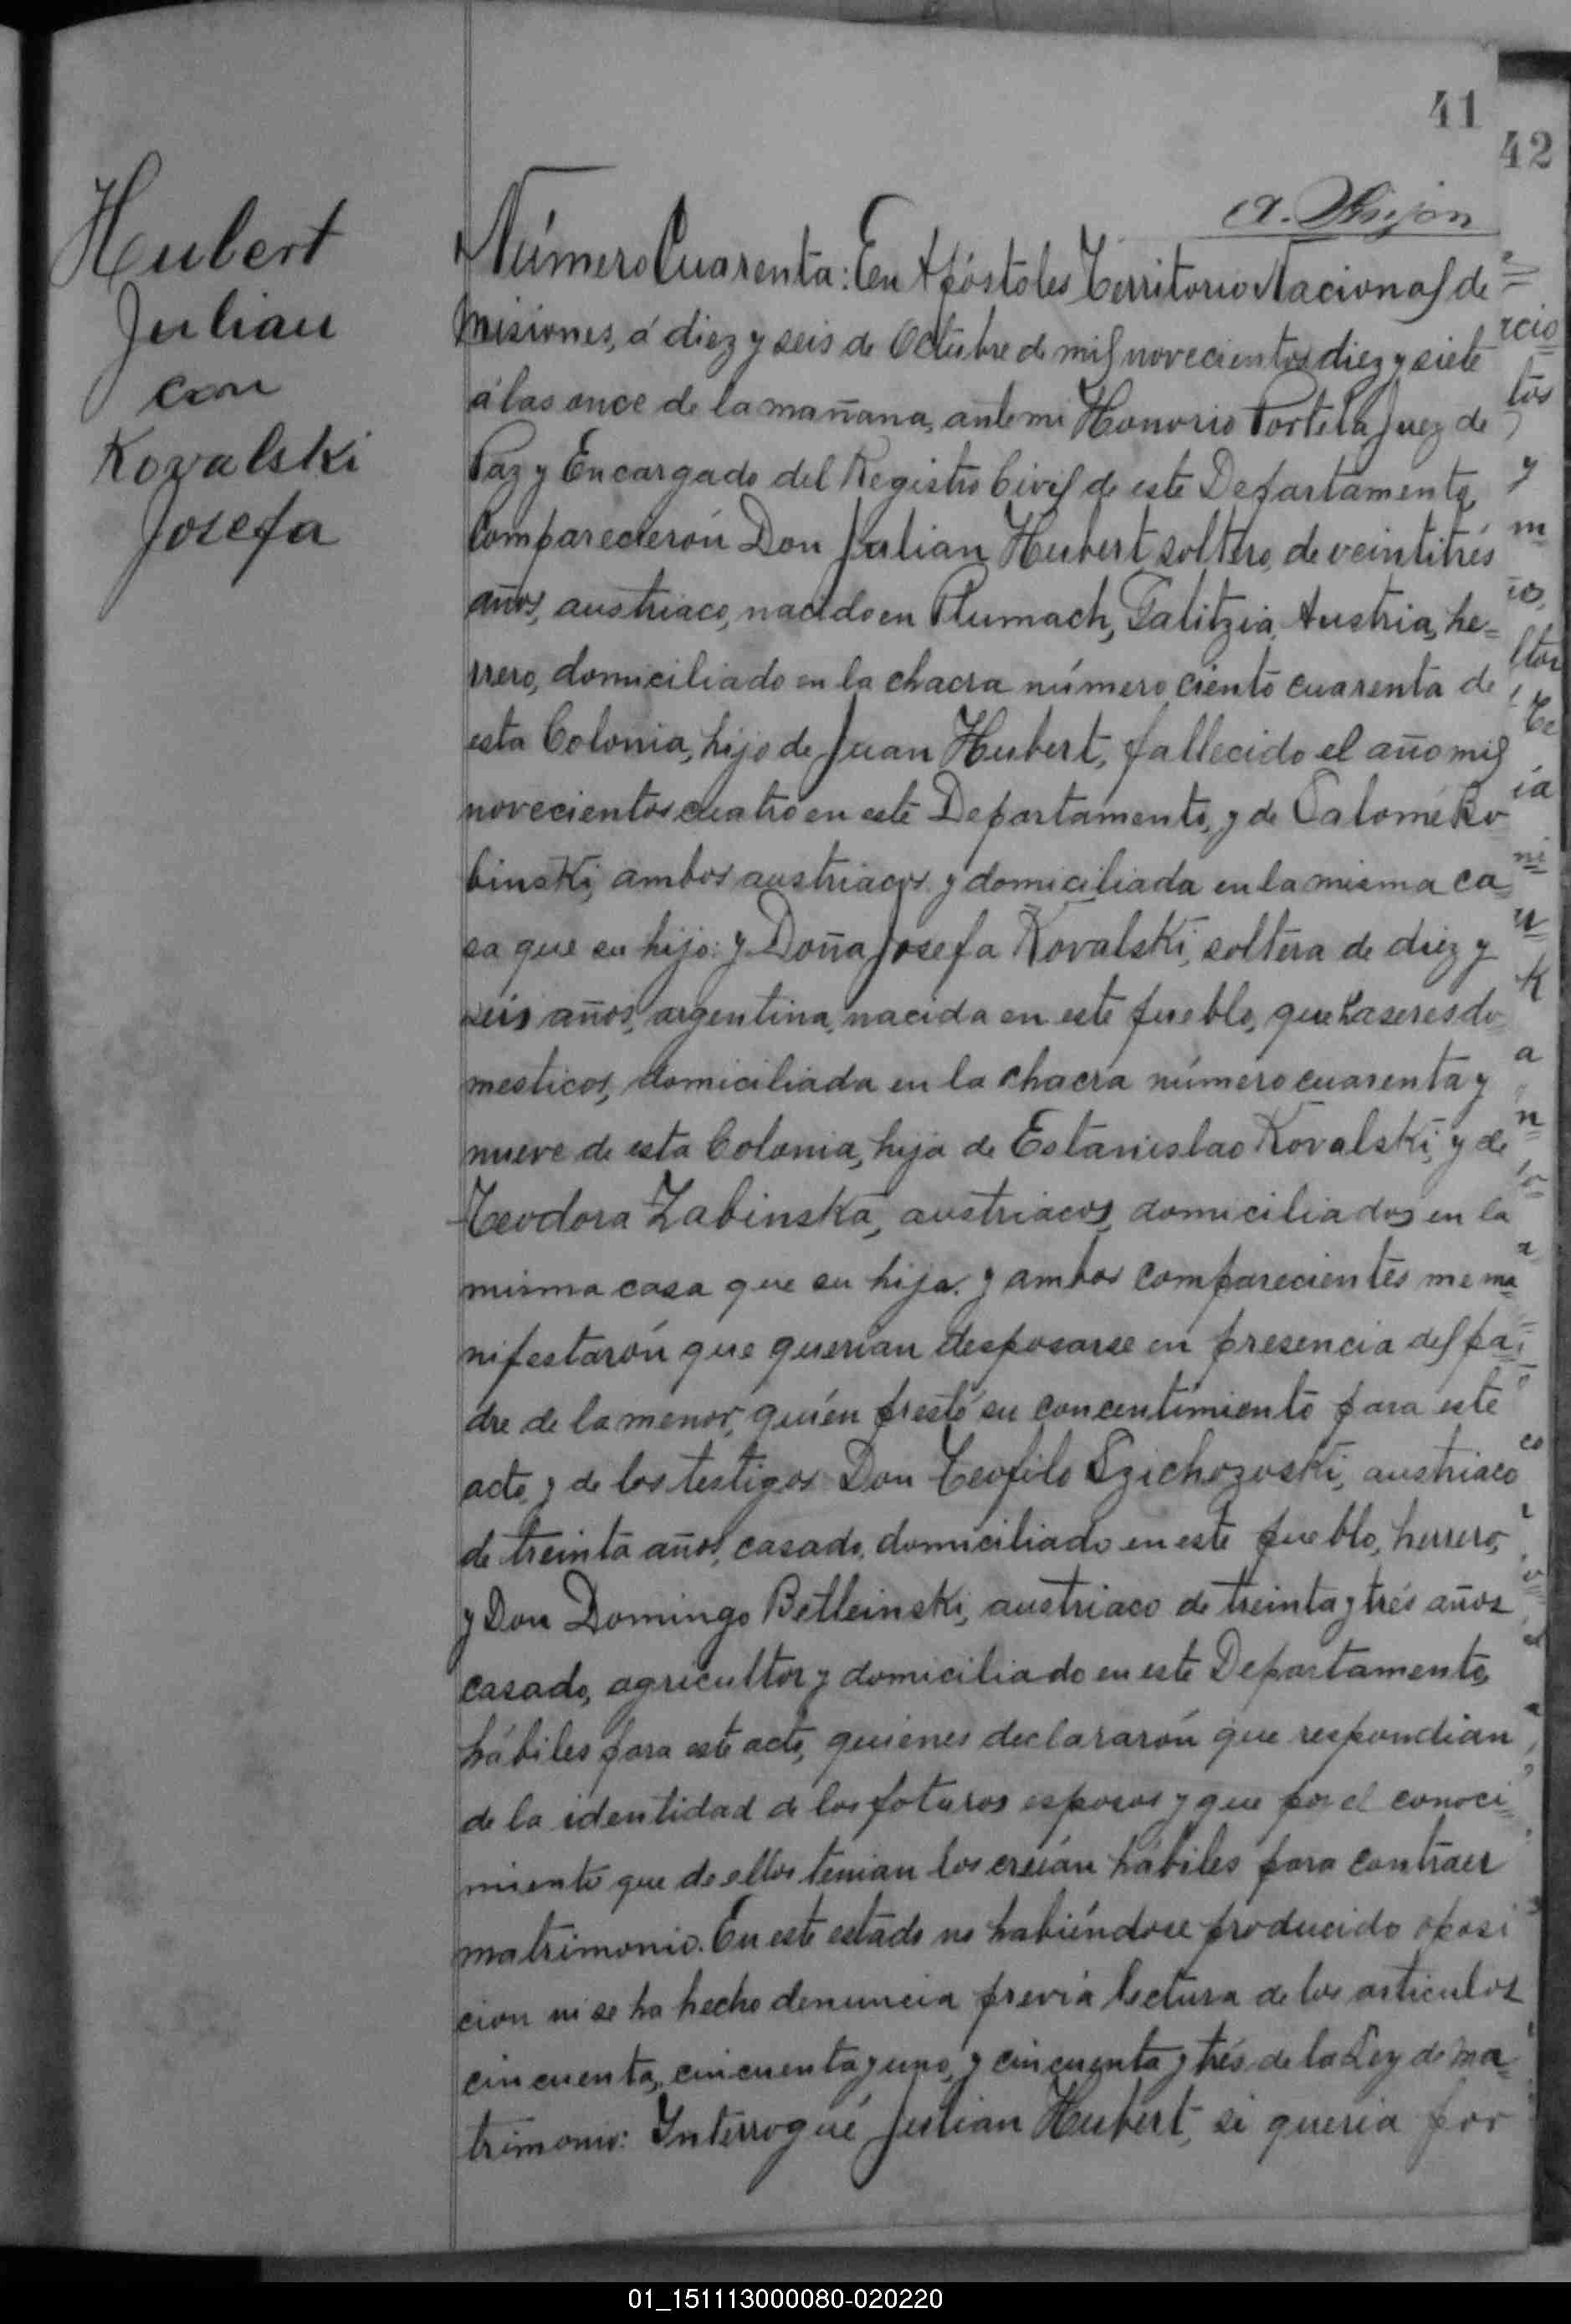 41
42
Hubert
Julian
con
Kovalski
Josefa
Número Cuarenta: En Apóstoles Territorio Nacional de
Misiones, á diez y seis de Octubre de mil novecientos diez y siete
á las once de la mañana, ante mi Honorio Portela Juez de
Paz y Encargado del Registro Civil de este Departamento,
comparecierón Don Julian Hubert, soltero, de veintitrés
años, austriaco, nacido en Tlumach, Galitzia, Austria, he=
rrero, domiciliado en la chacra número ciento cuarenta de
esta Colonia, hijo de Juan Hubert, fallecido el año mil
novecientos cuatro en este Departamento, y de Salomé Ro
binski, ambos austriacos y domiciliada en la misma ca
sa que su hijo: y Doña Josefa Kovalski, soltera de diez y
seis años, argentina, nacida en este pueblo, quehaseres do
mesticos, domiciliada en la chacra número cuarenta y
nueve de esta Colonia, hija de Estanislao Kovalski, y de
Teodora Zabinska, austriacos, domiciliados en la
misma casa que su hija. y ambos comparecientes me ma=
nifestarón que querian desposarse en presencia del pa=
dre de la menor, quién prestó su concentimiento para este
acto, y de los testigos Don Teofilo Szichozoski, austriaco
de treinta años, casado, domiciliado en este pueblo, herrero,
y Don Domingo Betleinski, austriaco de treinta y trés años
casado, agricultor y domiciliado en este Departamento,
hábiles para este acto, quiénes declararón que respondian
de la identidad de los foturos esposos y que por el conoci=
miento que de ellos tenian los creián hábiles para contraer
matrimonio. En este estado no habiéndose producido oposi
cion ni se ha hecho denuncia previa lectura de los articulos
cincuenta, cincuenta y uno, y cincuenta y trés de la Ley de Ma=
trimonio: Interrogué Julian Hubert, si queria por
01_151113000080-020220